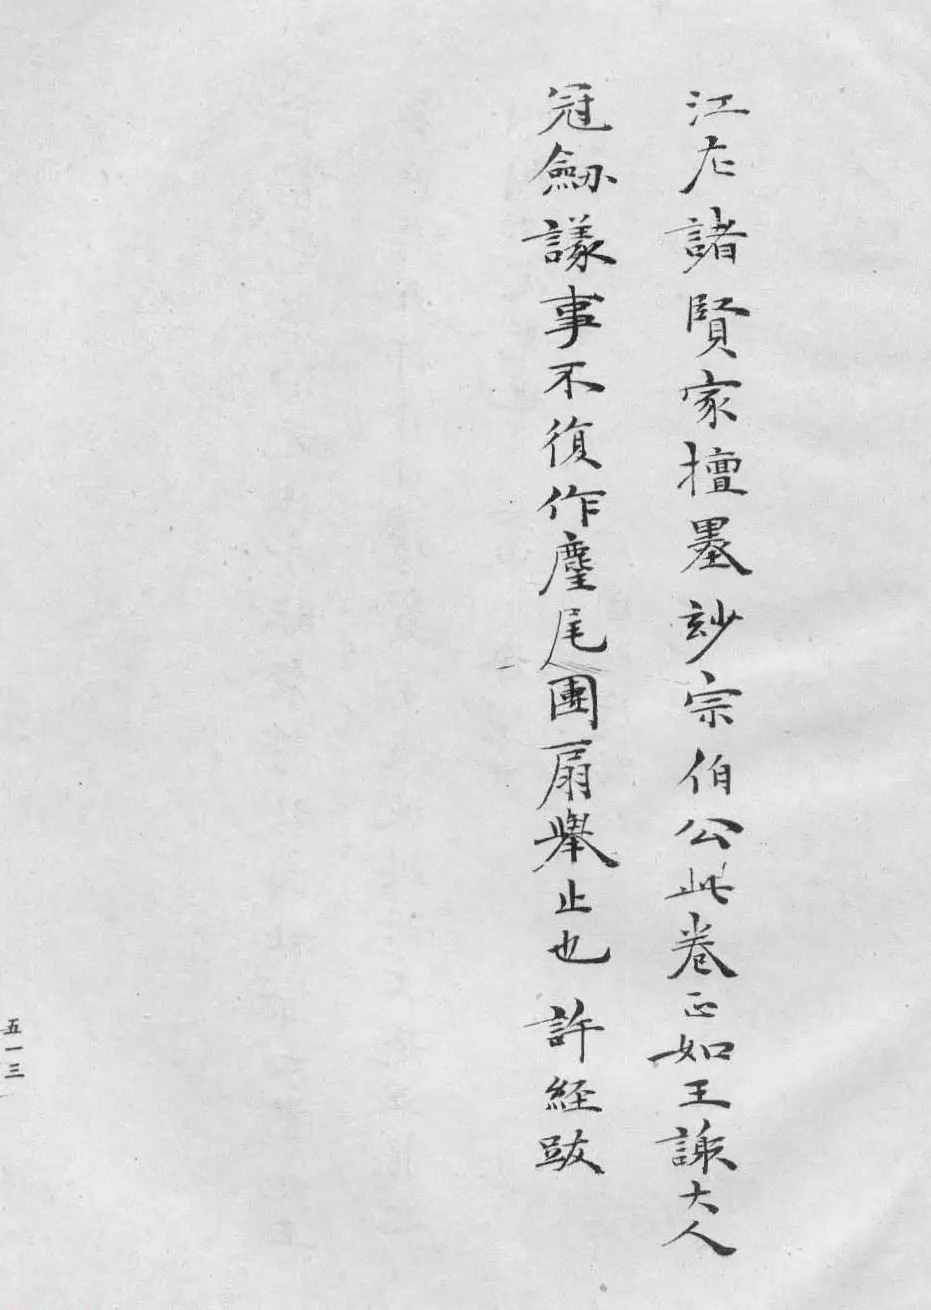 江左諸賢家擅墨玅宗伯公此卷正如王謝大人
冠劔議事不復作麈尾團扇舉止也 許經跋
五一三